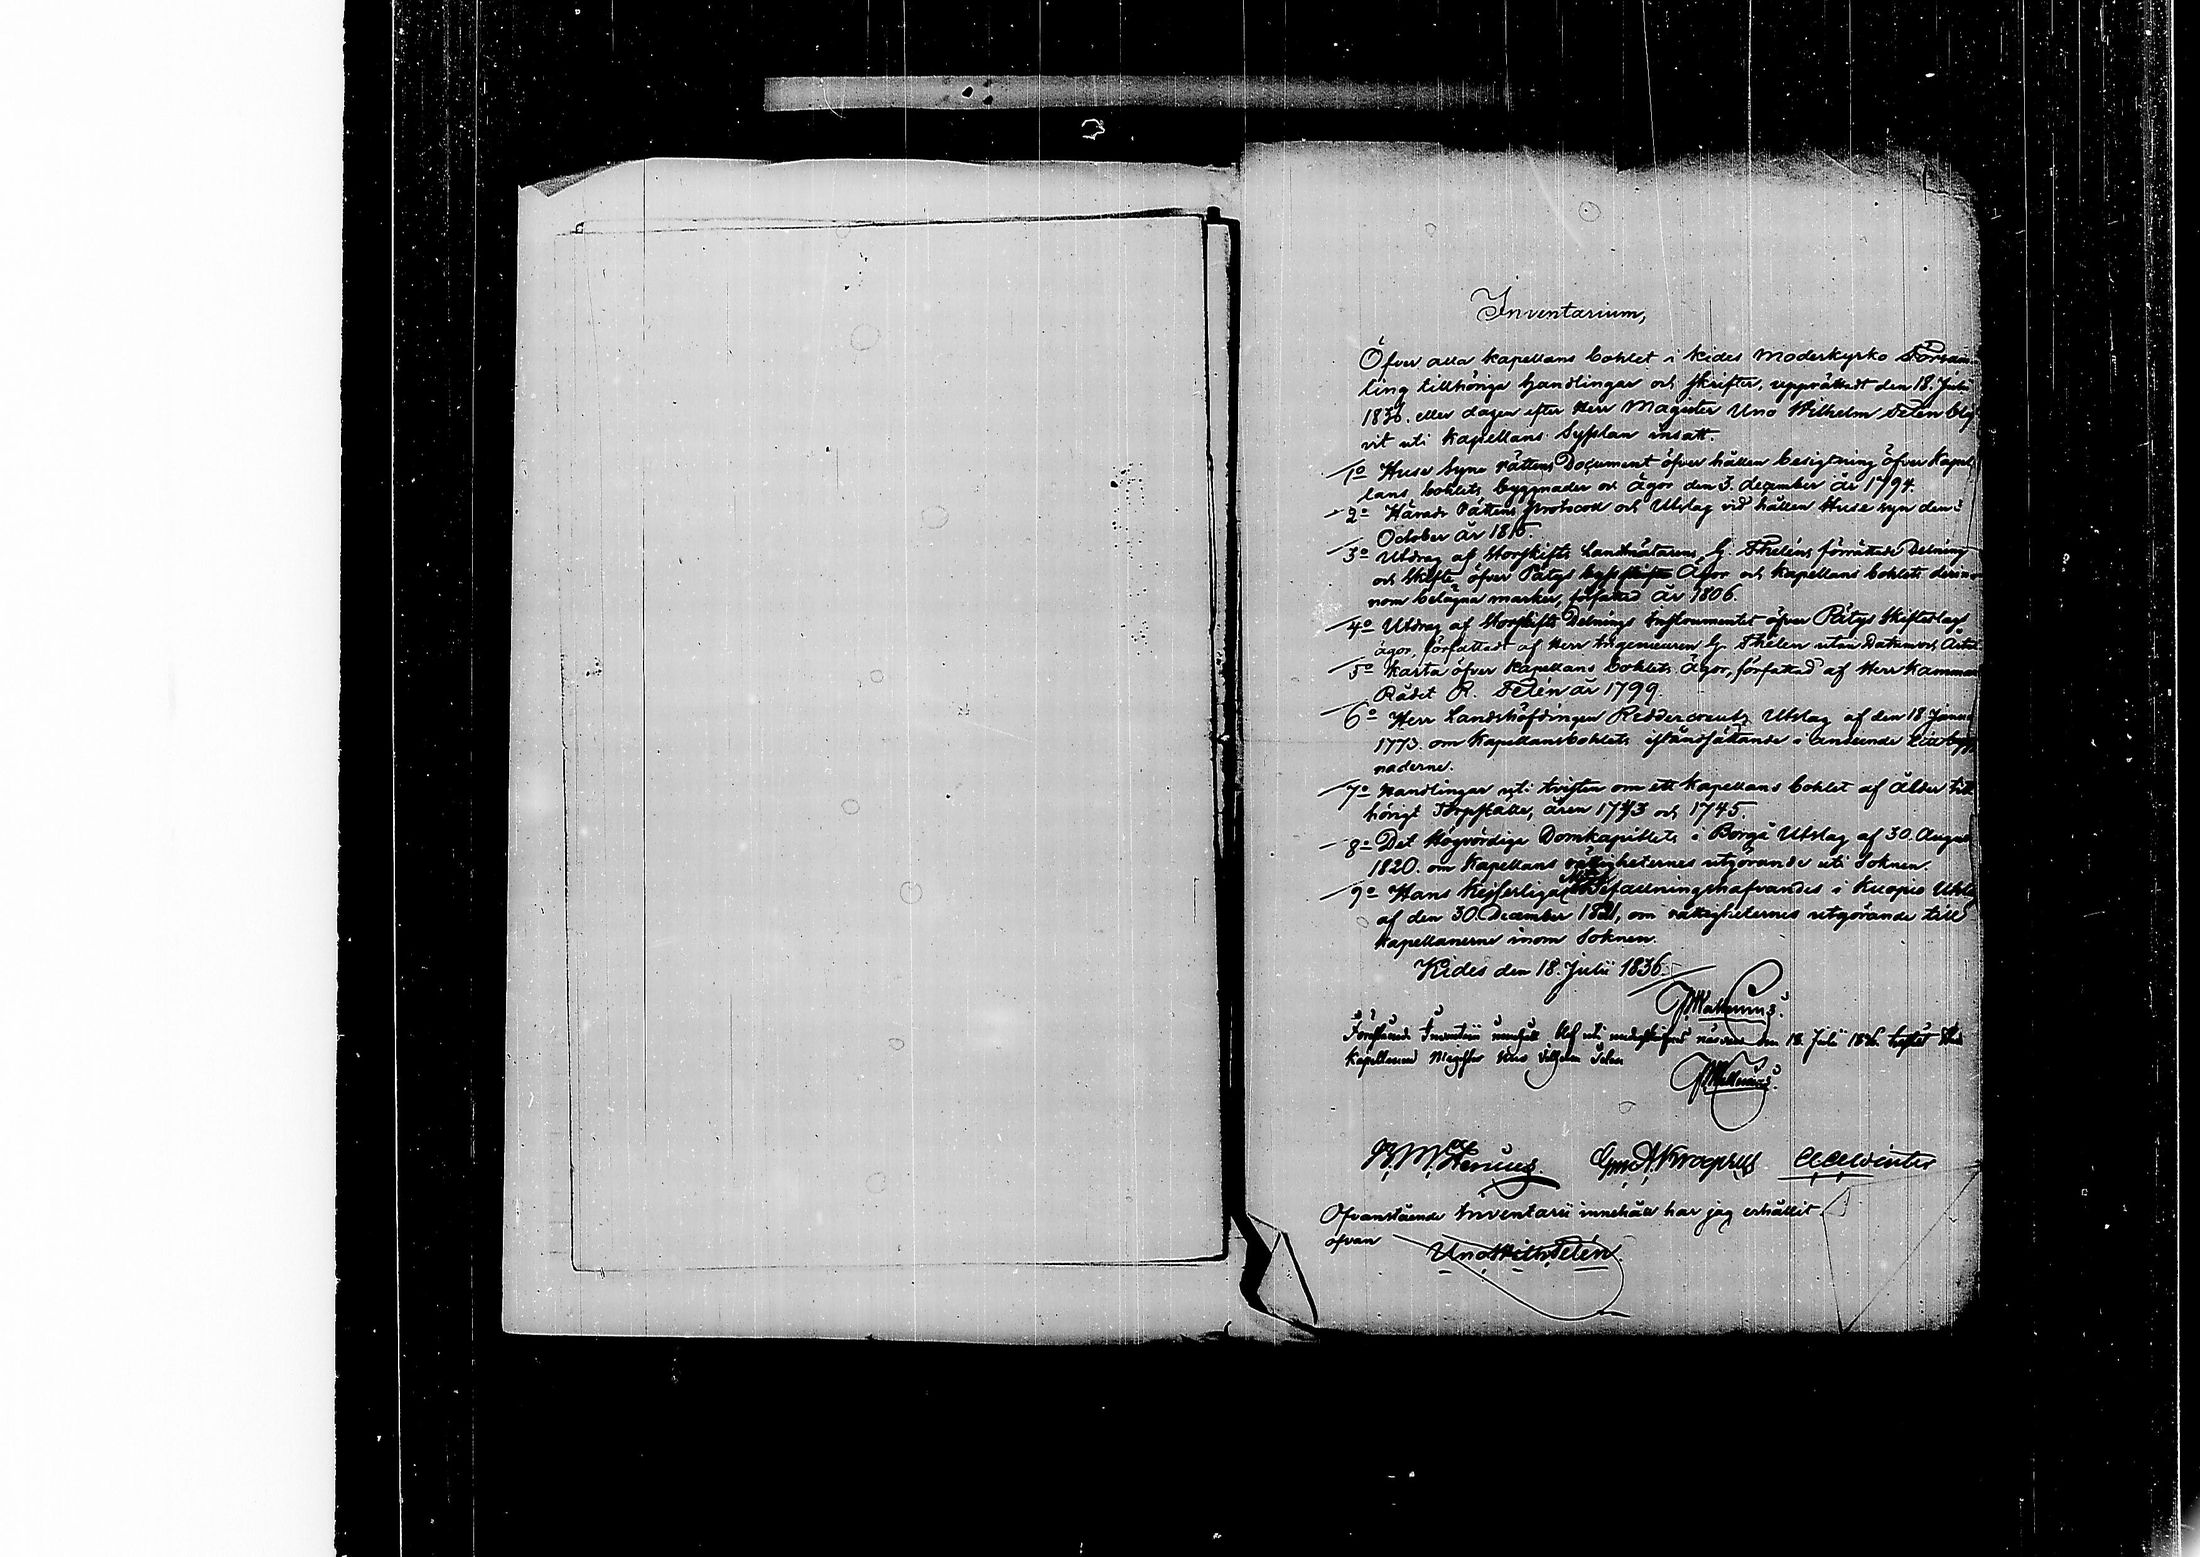 Inventarium,
Öfver alla kapellans bohlet i Kides Moderkyrko Försam-
ling tillhöriga Handlingar och Skrifter, upprättadt den 18. Julii
1836. eller dagen efter Herr Magister Uno Wilhelm Telén blif
vit uti kapellans Sysslan insatt.
1o Huse Syne Rättens Document öfver hållen besigtning öfver Kapel
lans bohlets byggnader och ägor den 3. december år 1794.
2o Härads Rättens Protocoll och Utslag vid hållen Huse syn den
October år 1815.
3o Utdrag af Storskifts Landtmätarens G. Theléns förrättade Delning
och Skifte öfver Pätys Ägor och kapellans bohlets derin-
nom belägna marker, författad år 1806.
4o Utdrag af Storskifts Delnings Instrumentet öfver Pätys Skifteslags
ägor, författadt af Herr Ingenieuren G. Thelén utan Datum och Årtal
5o Karta öfver Kapellans bohlets ägor, författad af Herr Kammar
Rådet R. Telén år 1799.
6o Herr Landshöfdingen Ridderscreutz Utslag af den 18 Janu
1773. om Kapellansbohlets iståndsättande i anseende till bygg
naderne.
7o Handlingar uti tvisten om ett kapellans bohlet af ålder till
hörigt Torpställe, åren 1743 och 1745.
8o Det Högvördige Domkapitlets i Borgå Utslag af 30. Augus
1820. om Kapellans rättigheternes utgörande uti Soknen.
9o Hans Kejserliga Befallningshafvandes i Kuopio Utsla
af den 30 December 1821, om rättigheternes utgörande till
kapellanerne inom Soknen.
Kides den 18. Julii 1836.
Förestående Inventarii innehåll blef uti undertecknads närvaro den 18 Julii 1836
kapellanen Magister Uno Vilhelm Telén
Ofvanstående Inventarii innehåll har jag erhållit
ofvan
Uno Wilh. Telén